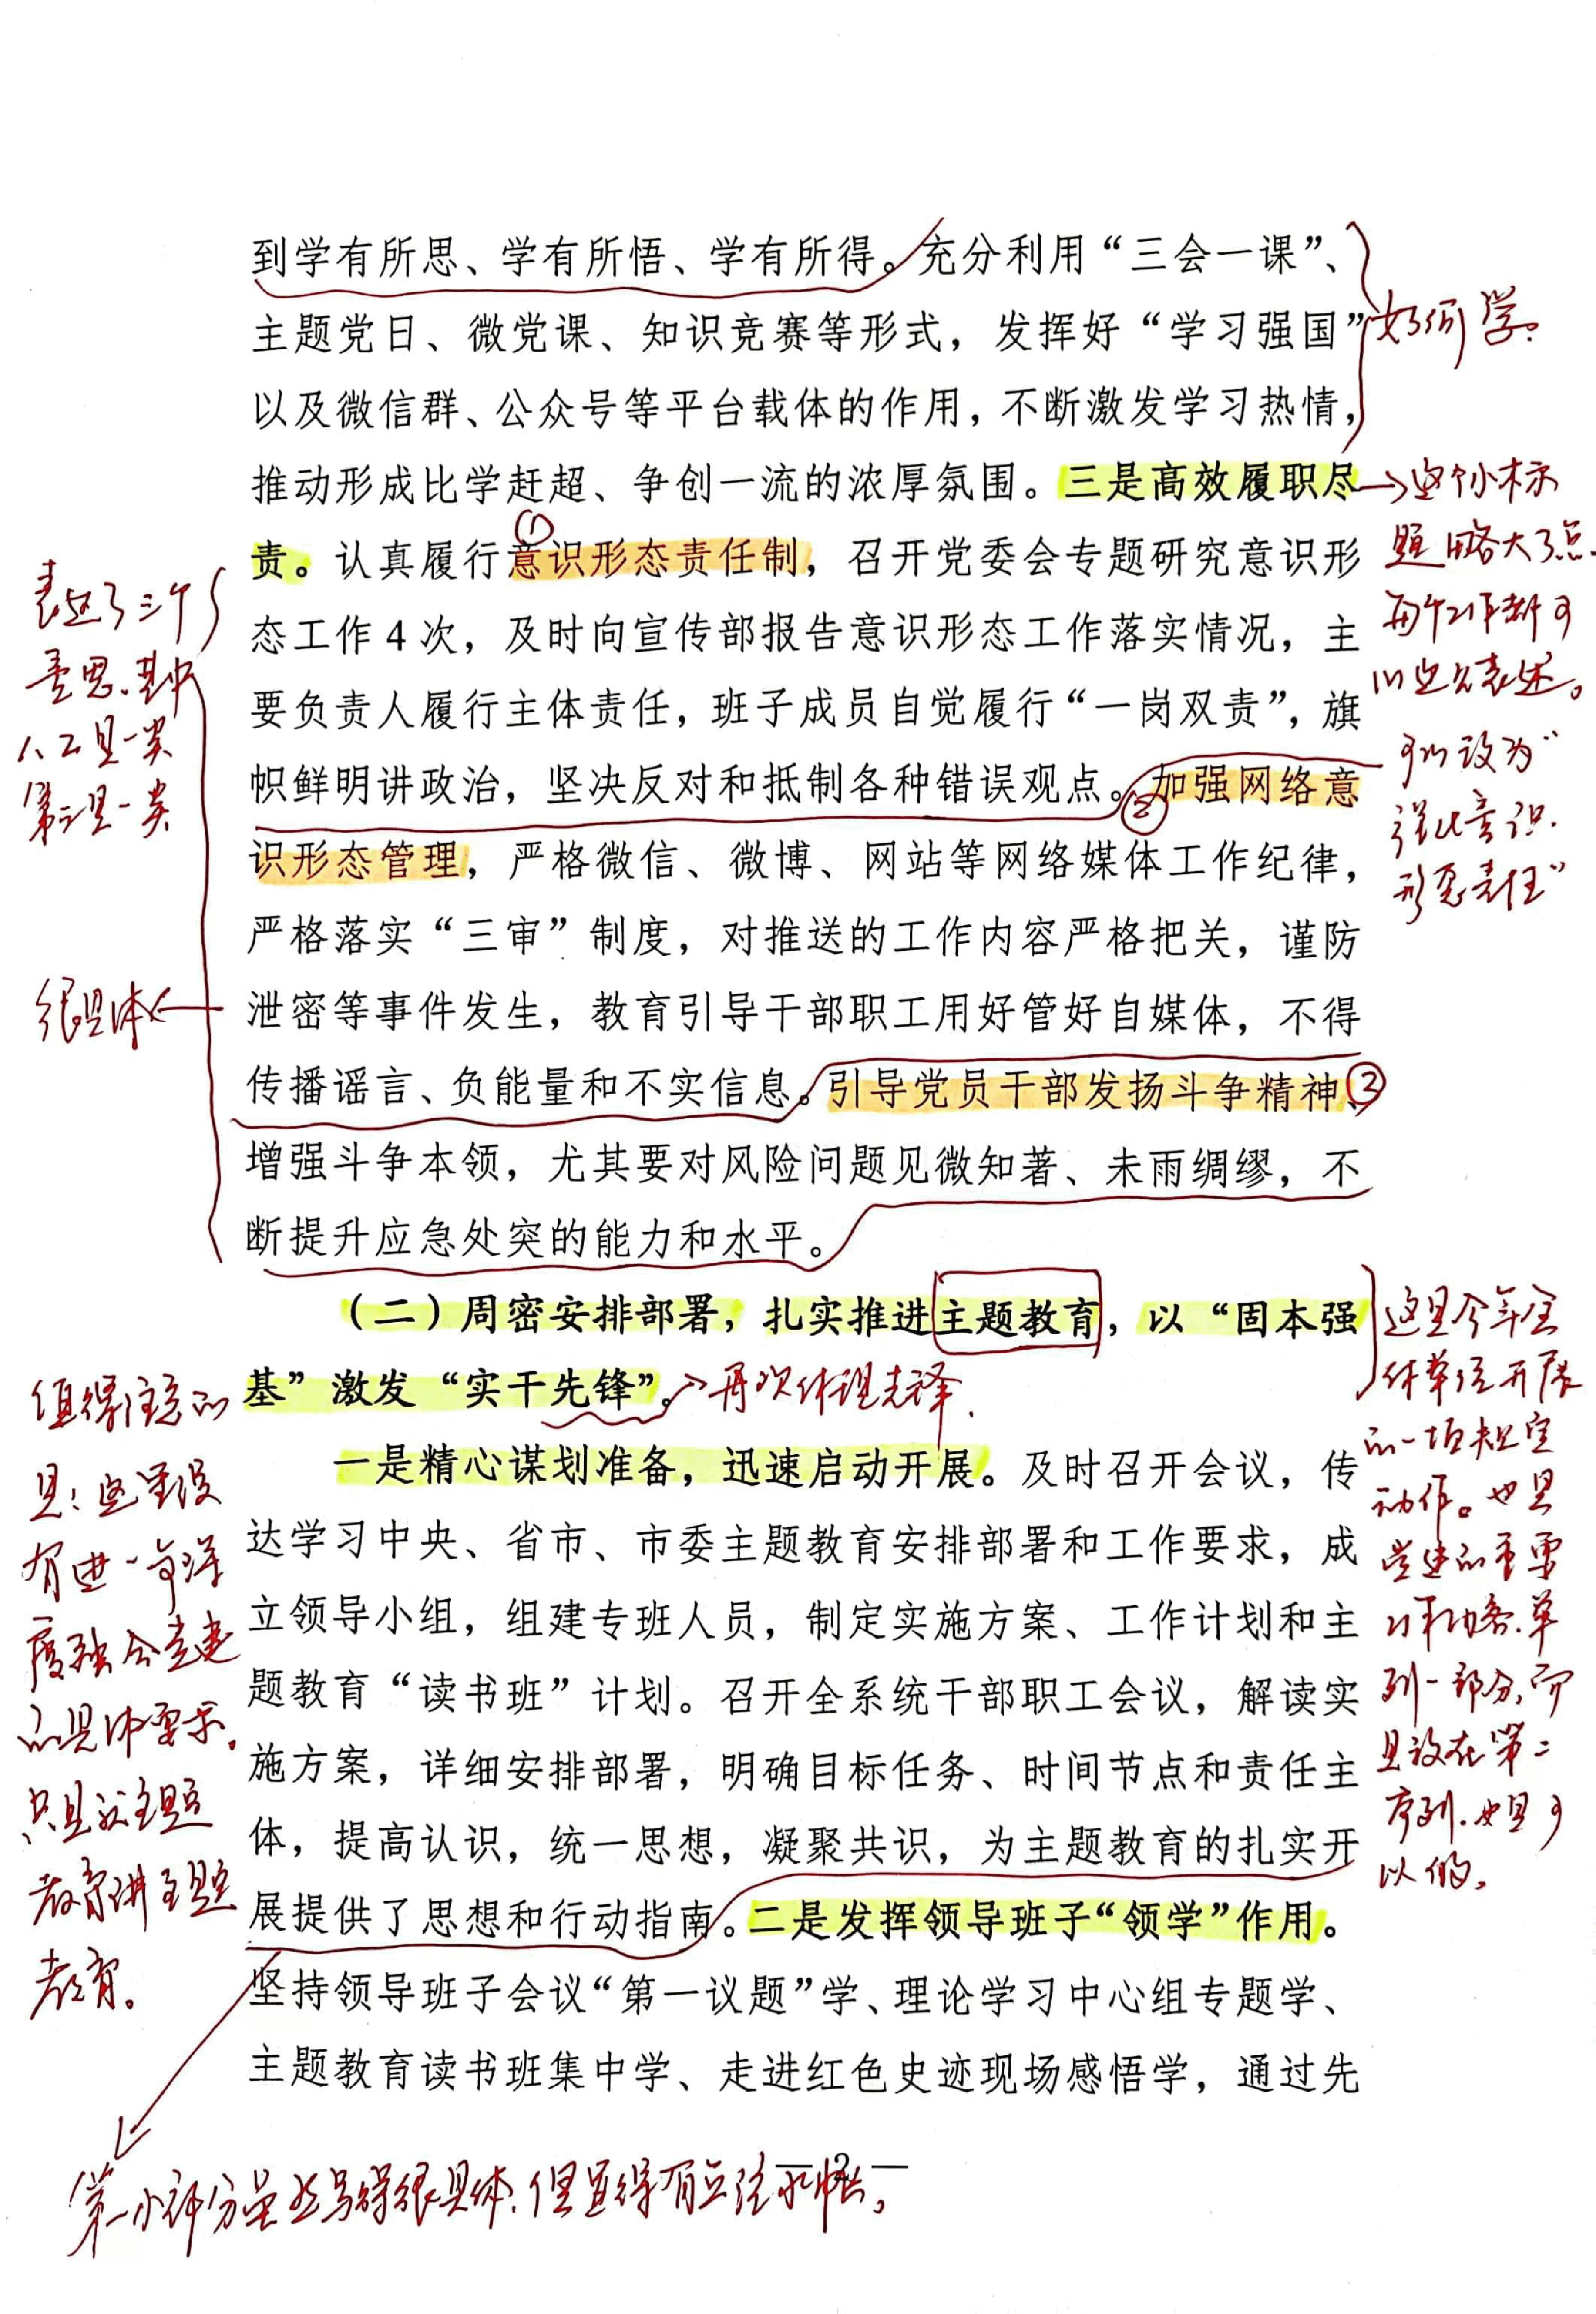 到学有所思、学有所悟、学有所得。充分利用“三会一课”、
主题党日、微党课、知识竞赛等形式，发挥好“学习强国”
以及微信群、公众号等平台载体的作用，不断激发学习热情，
推动形成比学赶超、争创一流的浓厚氛围。三是高效履职尽
责。认真履行意识形态责任制，召开党委会专题研究意识形
态工作4次，及时向宣传部报告意识形态工作落实情况，主
要负责人履行主体责任，班子成员自觉履行“一岗双责”，旗
帜鲜明讲政治，坚决反对和抵制各种错误观点。加强网络意
识形态管理，严格微信、微博、网站等网络媒体工作纪律，
严格落实“三审”制度，对推送的工作内容严格把关，谨防
泄密等事件发生，教育引导干部职工用好管好自媒体，不得
传播谣言、负能量和不实信息。引导党员干部发扬斗争精神、
增强斗争本领，尤其要对风险问题见微知著、未雨绸缪，不
断提升应急处突的能力和水平。
（二）周密安排部署，扎实推进主题教育，以“固本强
基”激发“实干先锋”。
一是精心谋划准备，迅速启动开展。及时召开会议，传
达学习中央、省市、市委主题教育安排部署和工作要求，成
立领导小组，组建专班人员，制定实施方案、工作计划和主
题教育“读书班”计划。召开全系统干部职工会议，解读实
施方案，详细安排部署，明确目标任务、时间节点和责任主
体，提高认识，统一思想，凝聚共识，为主题教育的扎实开
展提供了思想和行动指南。二是发挥领导班子“领学”作用。
坚持领导班子会议“第一议题”学、理论学习中心组专题学、
主题教育读书班集中学、走进红色史迹现场感悟学，通过先
— 2 —
如何学。
→这个小标
题略大了点。
每个工作都可
以这么表述。
可以设为“
强化意识
形态责任”
①
②
③
表达了三个
意思，其中
1、2是一类
第三是一类
很具体
→再次体现先锋.
这是今年全
体单位开展
的一项规定
动作。也是
党建的重要
工作内容.单
列一部分,而
且放在第二
序列.也是可
以的。
值得注意的
是：这里没
有进一步深
度融合党建
的具体要求。
只是就主题
教育讲主题
教育。
第一小部分虽然写得很具体,但显得有点流水帐。